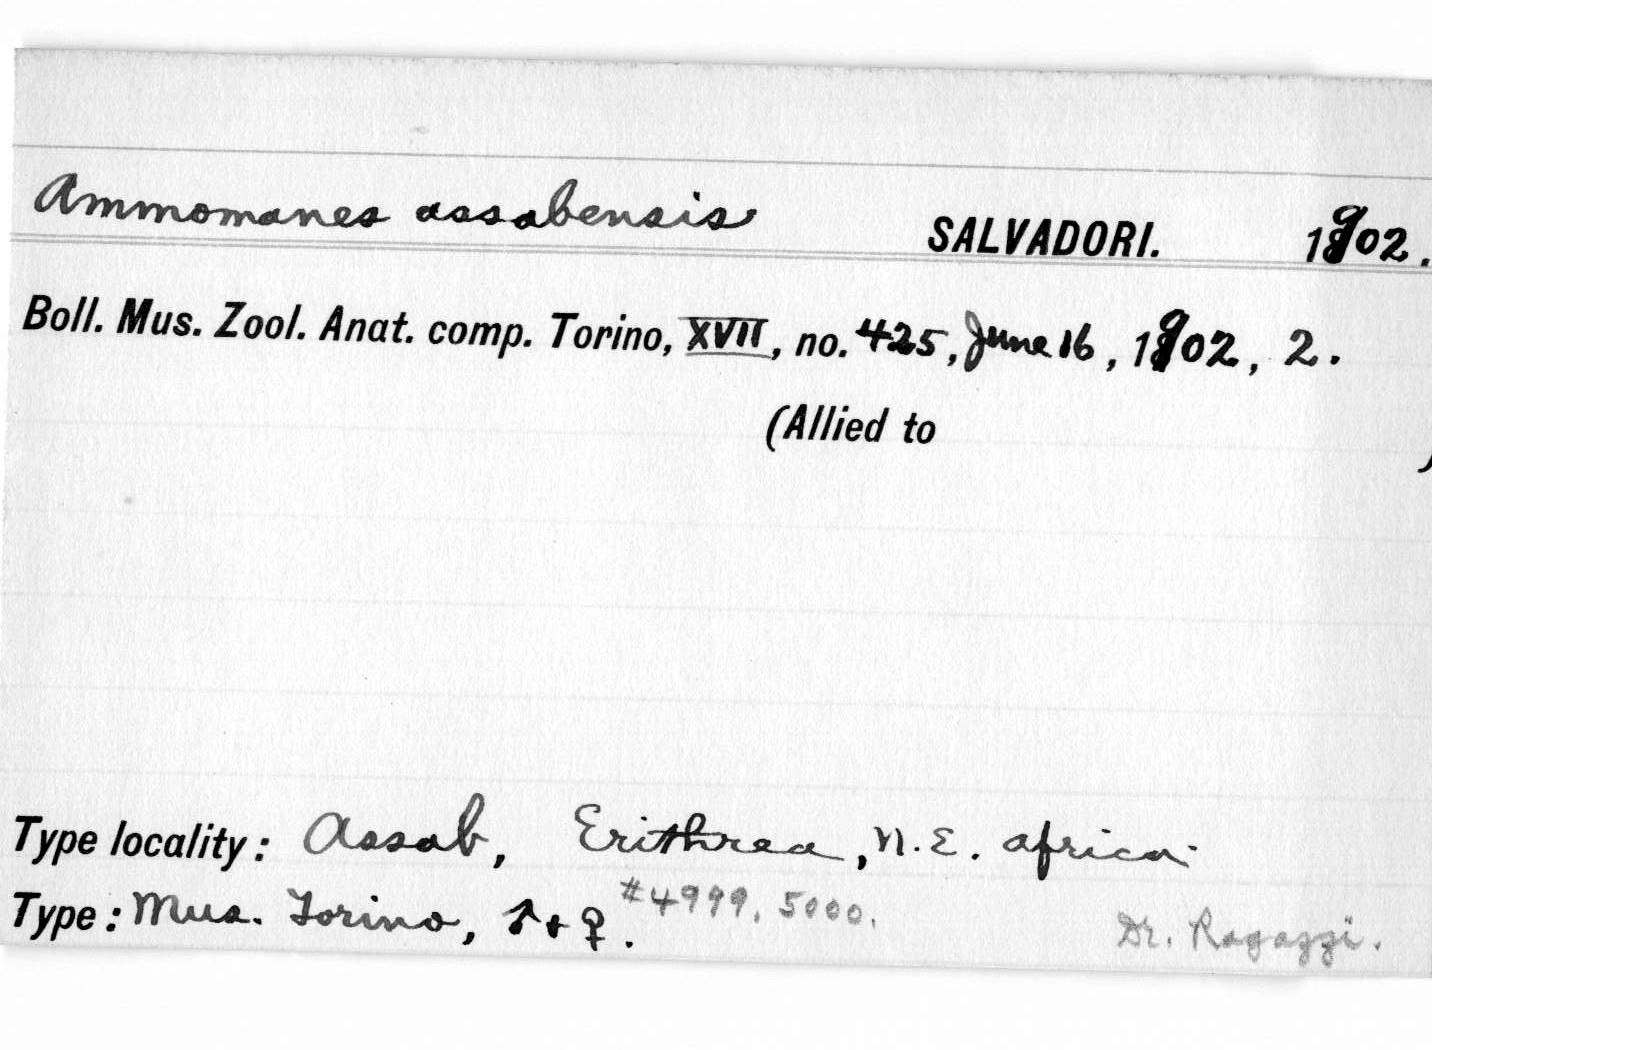 Ammomanes assabensis SALVADORI. 1902.
Boll. Mus. Zool. Anat. comp. Torino, XVII, no. 425, June 16, 1902, 2.
(Allied to )
Type locality: Assab, Erithrea, N.E. Africa
Type: Mus. Torino, ♂ + ♀. #4999, 5000. Dr. Ragazzi.